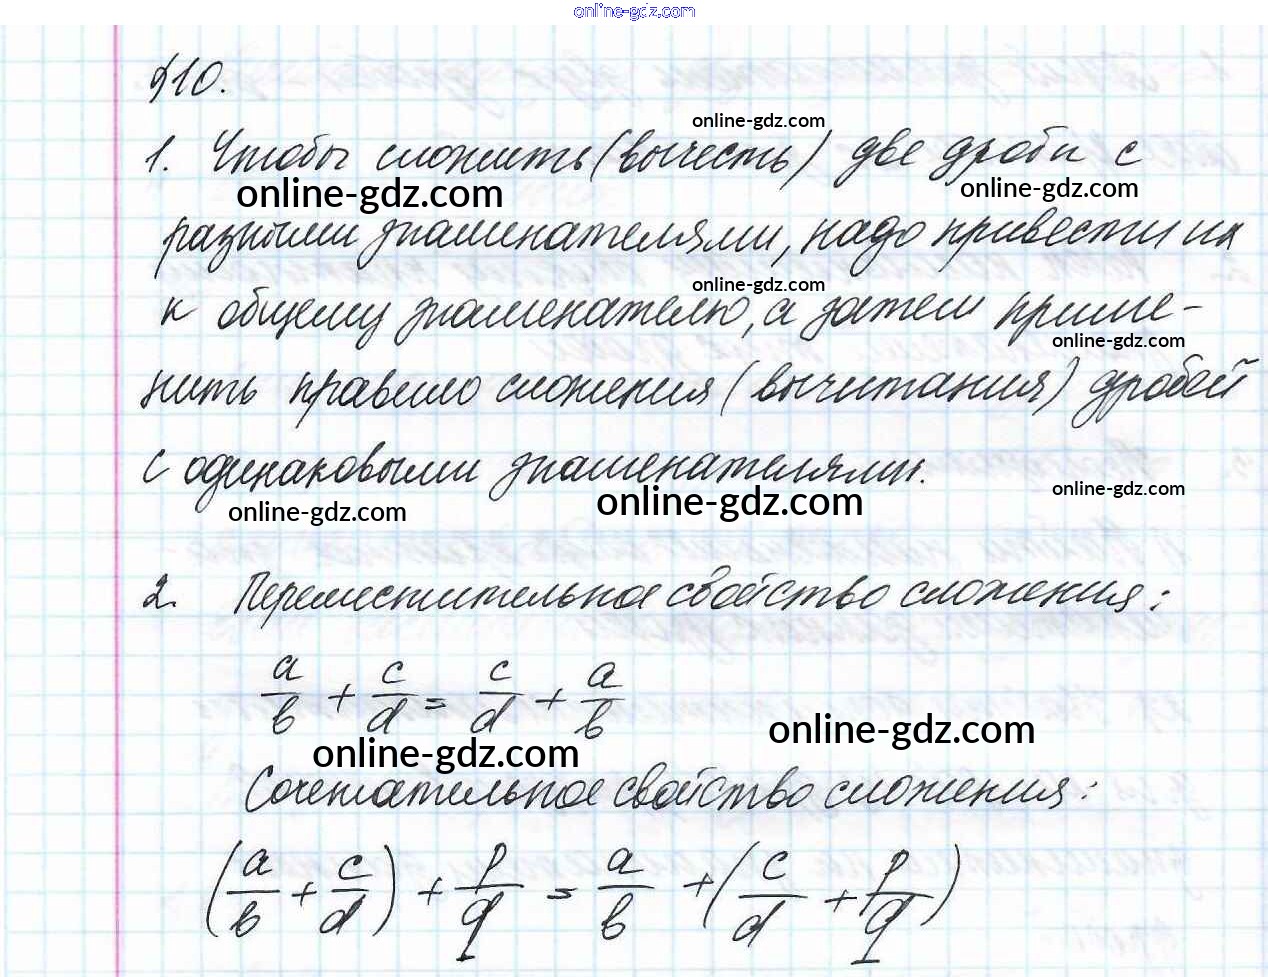 online-gdz.com
§10.
online-gdz.com
1. Чтобы сложить (вычесть) две дроби с
online-gdz.com
online-gdz.com
разными знаменателями, надо привести их
online-gdz.com
к общему знаменателю, а затем приме-
online-gdz.com
нить правило сложения (вычитания) дробей
с одинаковыми знаменателями.
online-gdz.com
online-gdz.com
online-gdz.com
2. Переместительное свойство сложения:
a/b + c/d = c/d + a/b
online-gdz.com
online-gdz.com
Сочетательное свойство сложения:
(a/b + c/d) + p/q = a/b + (c/d + p/q)